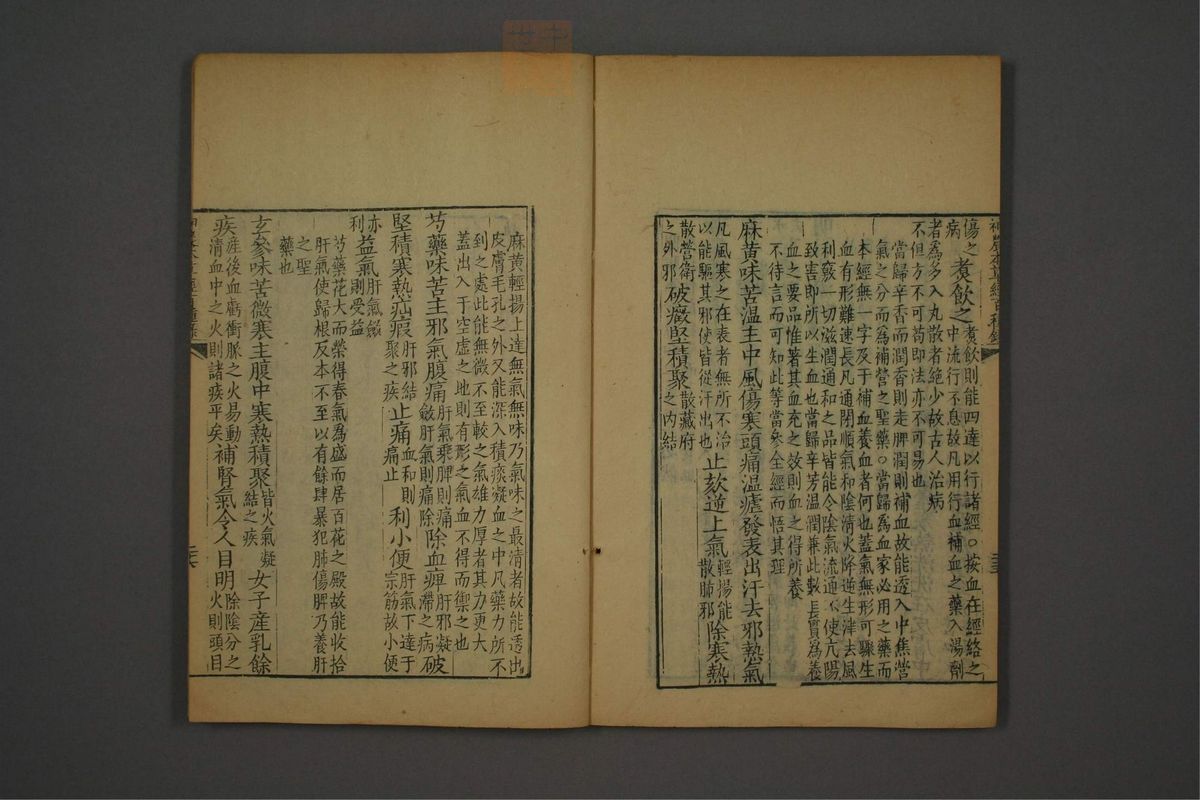 傷之
病
煮飲之
煮飲則能四達以行諸經○按血在經絡之
中流行不息故凡用行血補血之藥入湯劑
者為多入丸散者絕少故古人治病
不但方不可苟即法亦不可易也
當歸辛香而潤香則走脾潤則補血故能透入中焦營
氣之分而為補營之聖藥○當歸為血家必用之藥而
本經無一字及于補血養血者何也蓋氣無形可驟生
血有形難速長凡通閉順氣和陰清火降逆生津去風
利竅一切滋潤通和之品皆能令陰氣流通不使亢陽
致害即所以生血也當歸辛芳溫潤兼此數長實為養
血之要品惟著其血充之效則血之得所養
不待言而可知此等當參全經而悟其理
麻黃味苦溫主中風傷寒頭痛溫瘧發表出汗去邪熱氣
凡風寒之在表者無所不治
以能驅其邪使皆從汗出也
止欬逆上氣
輕揚能
散肺邪
除寒熱
散營衛
之外邪
破癥堅積聚
散藏府
之內結
麻黃輕揚上達無氣無味乃氣味之最清者故能透出
皮膚毛孔之外又能深入積痰凝血之中凡藥力所不
到之處此能無微不至較之氣雄力厚者其力更大
蓋出入于空虛之地則有形之氣血不得而禦之也
芍藥味苦主邪氣腹痛
肝氣乘脾則痛
斂肝氣則痛除
除血痺
肝邪凝
滯之病
破
堅積寒熱疝瘕
肝邪結
聚之疾
止痛
血和則
痛止
利小便
肝氣下達于
宗筋故小便
亦
利
益氣
肝氣斂
則受益
芍藥花大而榮得春氣為盛而居百花之殿故能收拾
肝氣使歸根反本不至以有餘肆暴犯肺傷脾乃養肝
之聖
藥也
玄參味苦微寒主腹中寒熱積聚
皆火氣凝
結之疾
女子產乳餘
疾
產後血虧衝脈之火易動
清血中之火則諸疾平矣
補腎氣令人目明
除陰分之
火則頭目